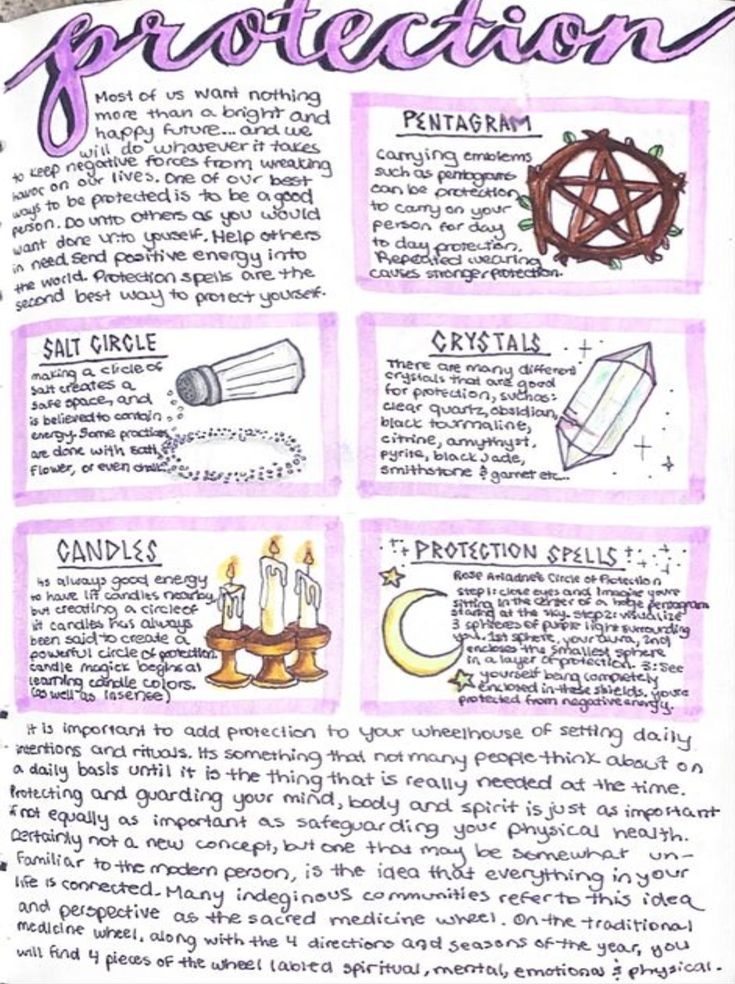 protection
Most of us want nothing
more than a bright and
happy future... and we
will do whatever it takes
to keep negative forces from wreaking
havoc on our lives. One of our best
ways to be protected is to be a good
person. Do unto others as you would
want done unto yourself. Help others
in need. Send positive energy into
the world. Protection spells are the
second best way to protect yourself.
PENTAGRAM
carrying emblems
such as pentagrams
can be protection
to carry on your
person for day
to day protection.
Repeated wearing
causes stronger protection.
SALT CIRCLE
making a clicle of
salt creates a
safe space, and
is believed to contain
energy. Some practices
are done with salt,
flower, or even chalk.
CRYSTALS
There are many different
crystals that are good
for protection, such as:
clear quartz, obsidian,
black tourmaline,
citrine, amythyst,
pyrite, black Jade,
smithstone & garnet etc...
CANDLES
its always good energy
to have lit candles nearby,
but creating a circle of
lit candles has always
been said to create a
powerful circle of protection.
candle magick begins at
learning candle colors.
(as well as insense)
PROTECTION SPELLS
Rose Ariadne's Circle of Protection
step 1: close eyes and Imagine you're
sitting in the center of a huge pentagram
staring at the sky. Step 2: visualize
3 spheres of purple light surrounding
you. 1st sphere, your aura, 2nd
encloses the smallest sphere
in a layer of protection. 3: See
yourself being completely
enclosed in these shields. your
protected from negative energy.
it is important to add protection to your wheelhouse of setting daily
intentions and rituals. Its something that not many people think about on
a daily basis until it is the thing that is really needed at the time.
Protecting and guarding your mind, body and spirit is just as important
if not equally as important as safeguarding your physical health.
Certainly not a new concept, but one that may be somewhat un-
familiar to the modern person, is the idea that everything in your
life is connected. Many indeginous communities refer to this idea
and perspective as the sacred medicine wheel. On the traditional
medicine wheel, along with the 4 directions and seasons of the year, you
will find 4 pieces of the wheel labled spiritual, mental, emotional & physical.